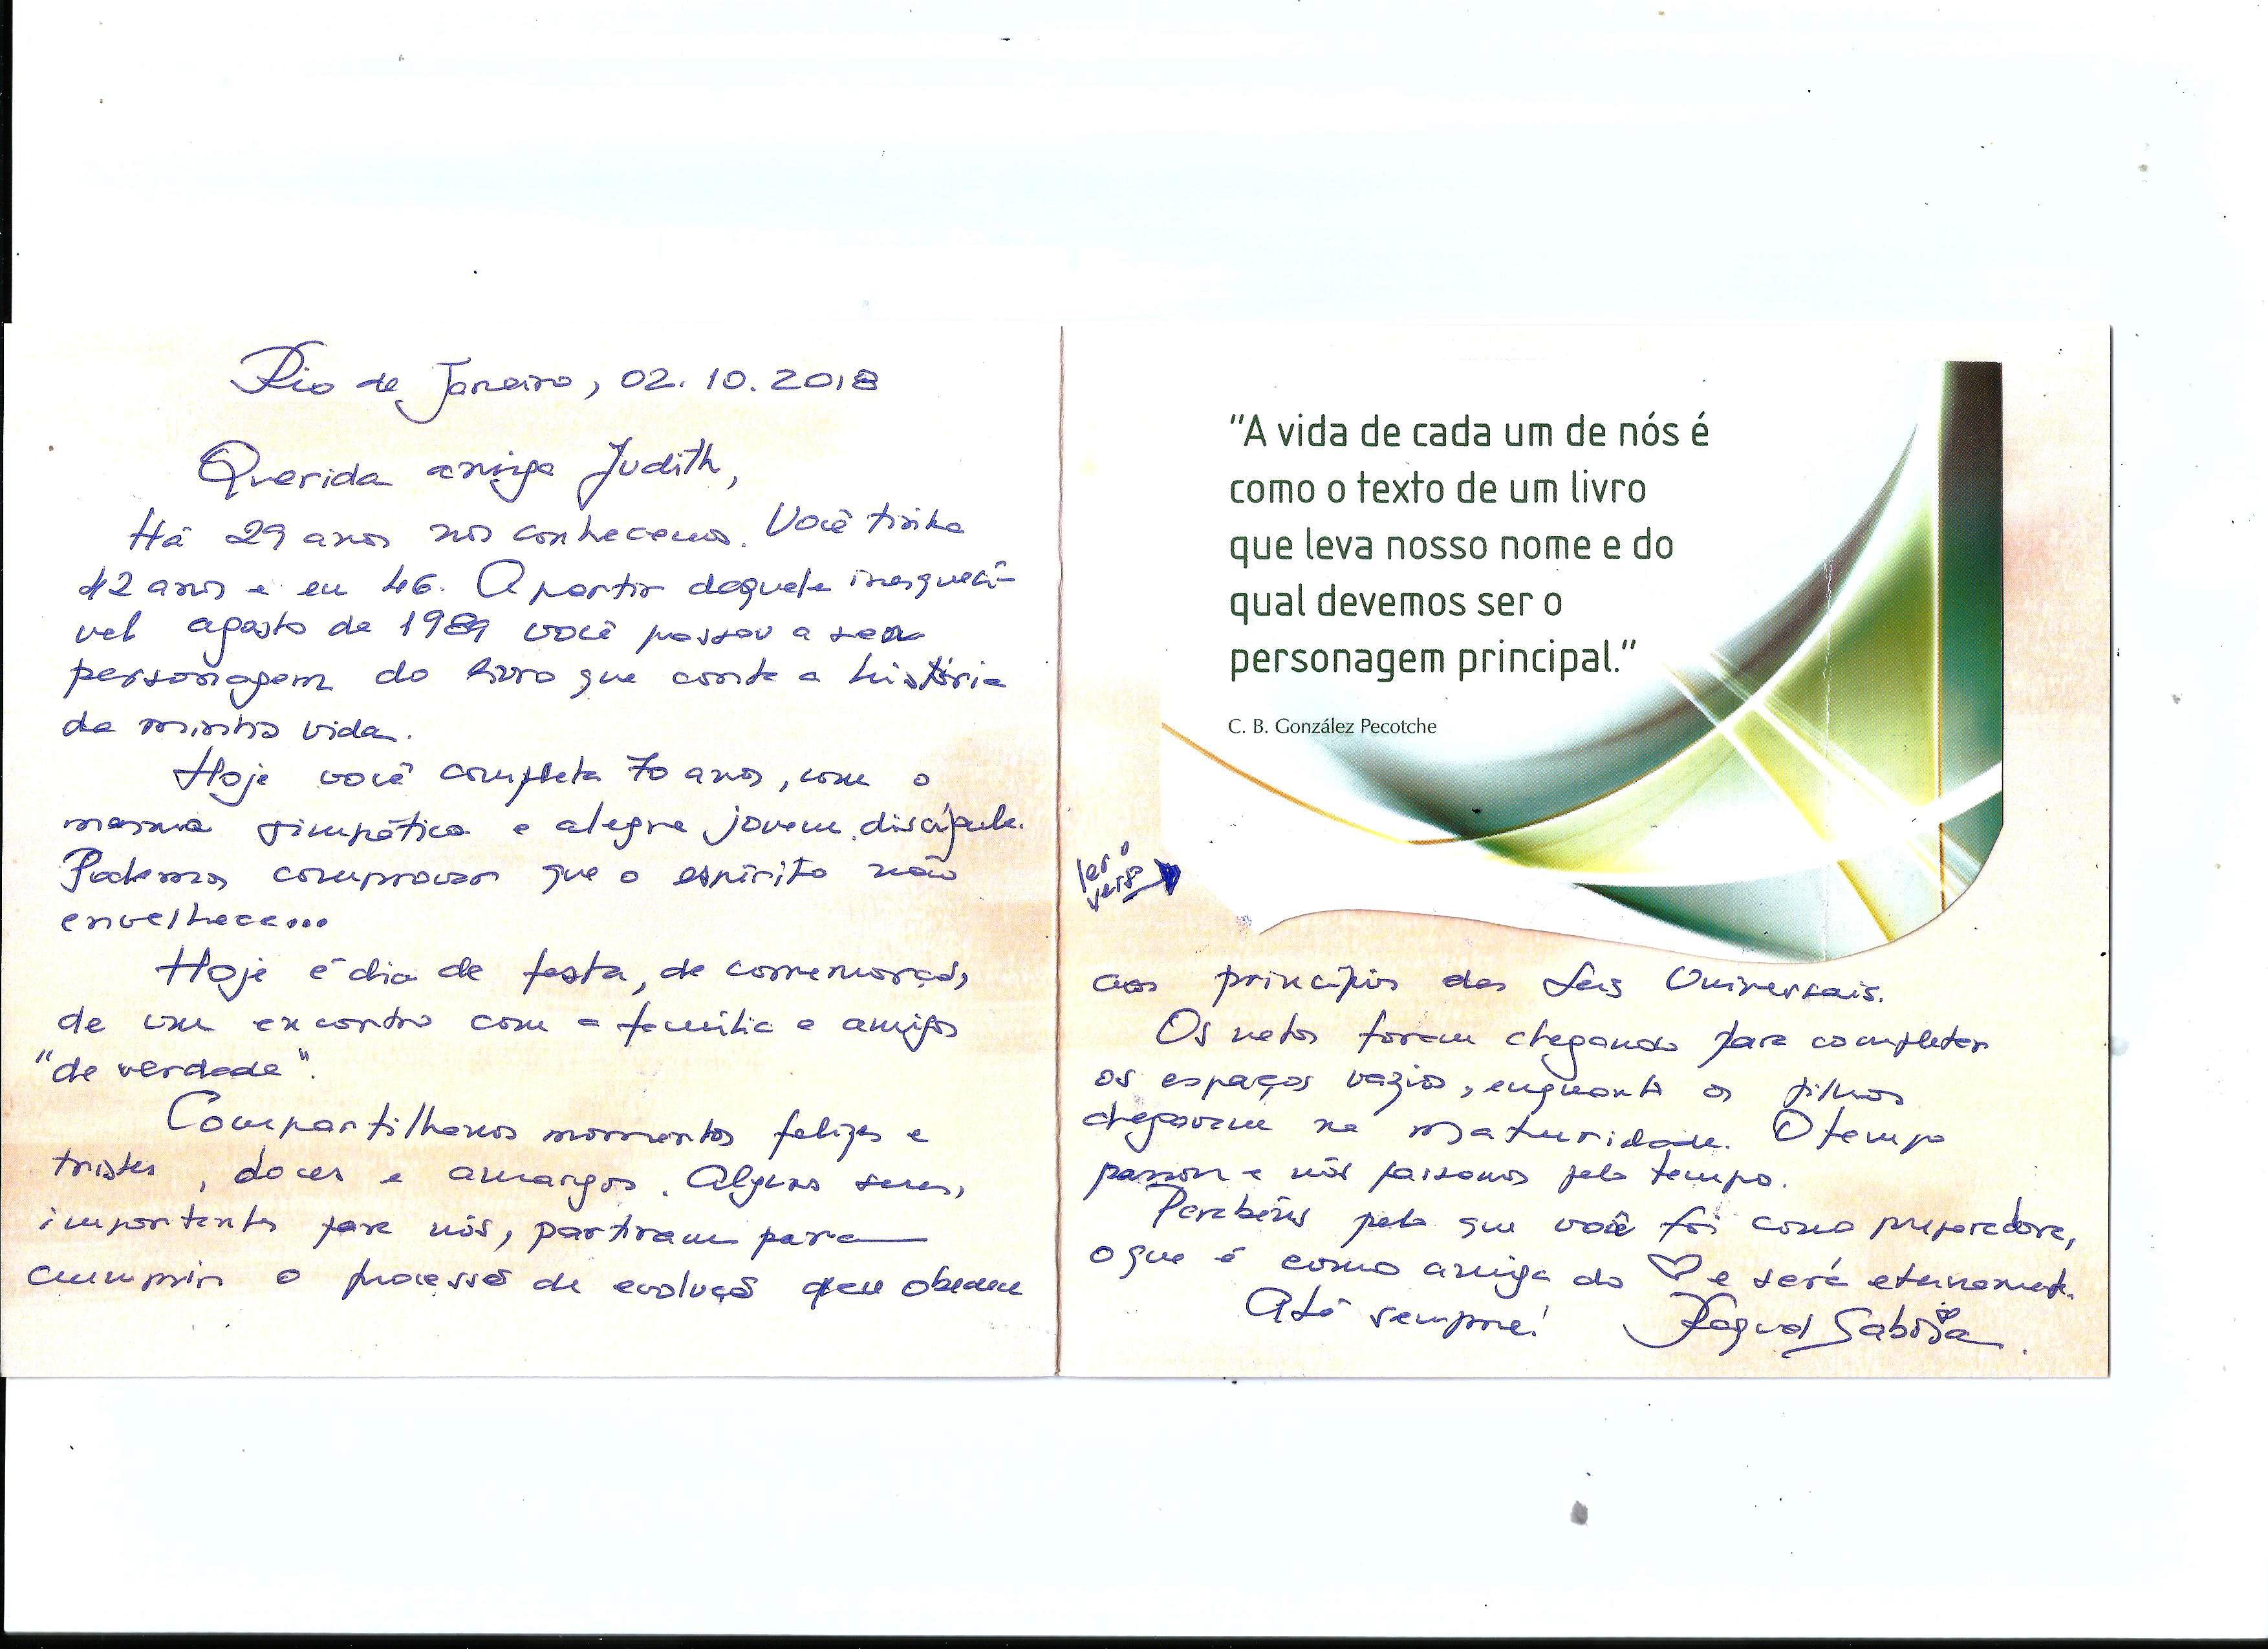 Rio de Janeiro, 02.10.2018
Querida amiga Judith,
Há 29 anos nos conhecemos. Você tinha
42 anos e eu 46. A partir daquele inesquecí-
vel agosto de 1989 você passou a ser
personagem do livro que conta a história
da minha vida.
Hoje você completa 70 anos, com o
mesma simpática e alegre jovem discípula.
Podemos comprovar que o espírito não
envelhece...
Hoje é dia de festa, de comemoração,
de um encontro com a família e amigos
"de verdade".
Compartilhamos momentos felizes e
tristes, doces e amargos. Alguns seres,
importantes para nós, partiram para
cumprir o processo de evolução que obedece
"A vida de cada um de nós é
como o texto de um livro
que leva nosso nome e do
qual devemos ser o
personagem principal."
C. B. González Pecotche
ler o
verso
aos princípios das Leis Universais.
Os netos foram chegando para completar
os espaços vazios, enquanto os filhos
chegavam na maturidade. O tempo
passou e nós passamos pelo tempo.
Parabéns pelo que você foi como preparadora,
o que é como amiga do ♡ e será eternamente.
Até sempre! Raquel Saboia